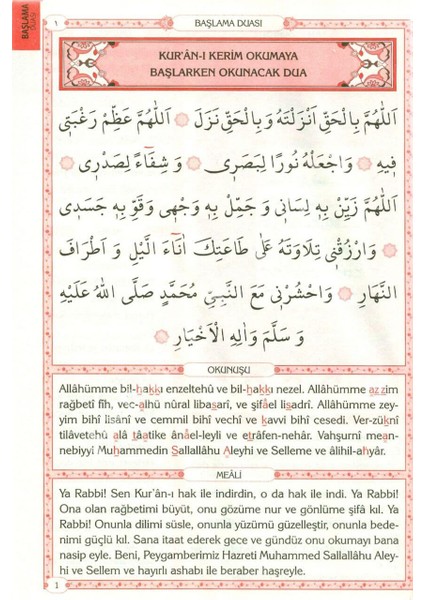 BAŞLAMA
DUASI
١
BAŞLAMA DUASI
KUR'ÂN-I KERİM OKUMAYA
BAŞLARKEN OKUNACAK DUA
اَللّٰهُمَّ بِالْحَقِّ اَنْزَلْتَهُ وَ بِالْحَقِّ نَزَلَ اَللّٰهُمَّ عَظِّمْ رَغْبَتٖى
فٖيهِ وَاجْعَلْهُ نُورًا لِبَصَرٖى وَ شِفَٓاءً لِصَدْرٖى
اَللّٰهُمَّ زَيِّنْ بِهٖ لِسَانٖى وَ جَمِّلْ بِهٖ وَجْهٖى وَقَوِّ بِهٖ جَسَدٖى
وَارْزُقْنٖى تِلَاوَتَهُ عَلٰى طَاعَتِكَ اٰنَٓاءَ الَّيْلِ وَ اَطْرَافَ
النَّهَارِ وَاحْشُرْنٖى مَعَ النَّبِىِّ مُحَمَّدٍ صَلَّى اللّٰهُ عَلَيْهِ
وَ سَلَّمَ وَاٰلِهِ الْاَخْيَارِ
OKUNUŞU
Allâhümme bil-hakkı enzeltehû ve bil-hakkı nezel. Allâhümme azzim
rağbetî fîh, vec-alhü nûral libasarî, ve şifâel lisadrî. Allâhümme zey-
yim bihî lisânî ve cemmil bihî vechî ve kavvi bihî cesedî. Ver-züknî
tilâvetehû alâ tâatike ânâel-leyli ve etrâfen-nehâr. Vahşurnî mean-
nebiyyi Muhammedin Sallallâhu Aleyhi ve Selleme ve âlihil-ahyâr.
MEÂLİ
Ya Rabbi! Sen Kur'ân-ı hak ile indirdin, o da hak ile indi. Ya Rabbi!
Ona olan rağbetimi büyüt, onu gözüme nur ve gönlüme şifâ kıl. Ya
Rabbi! Onunla dilimi süsle, onunla yüzümü güzelleştir, onunla bede-
nimi güçlü kıl. Sana itaat ederek gece ve gündüz onu okumayı bana
nasip eyle. Beni, Peygamberimiz Hazreti Muhammed Sallallâhu Aley-
hi ve Sellem ve hayırlı ashabı ile beraber haşreyle.
1